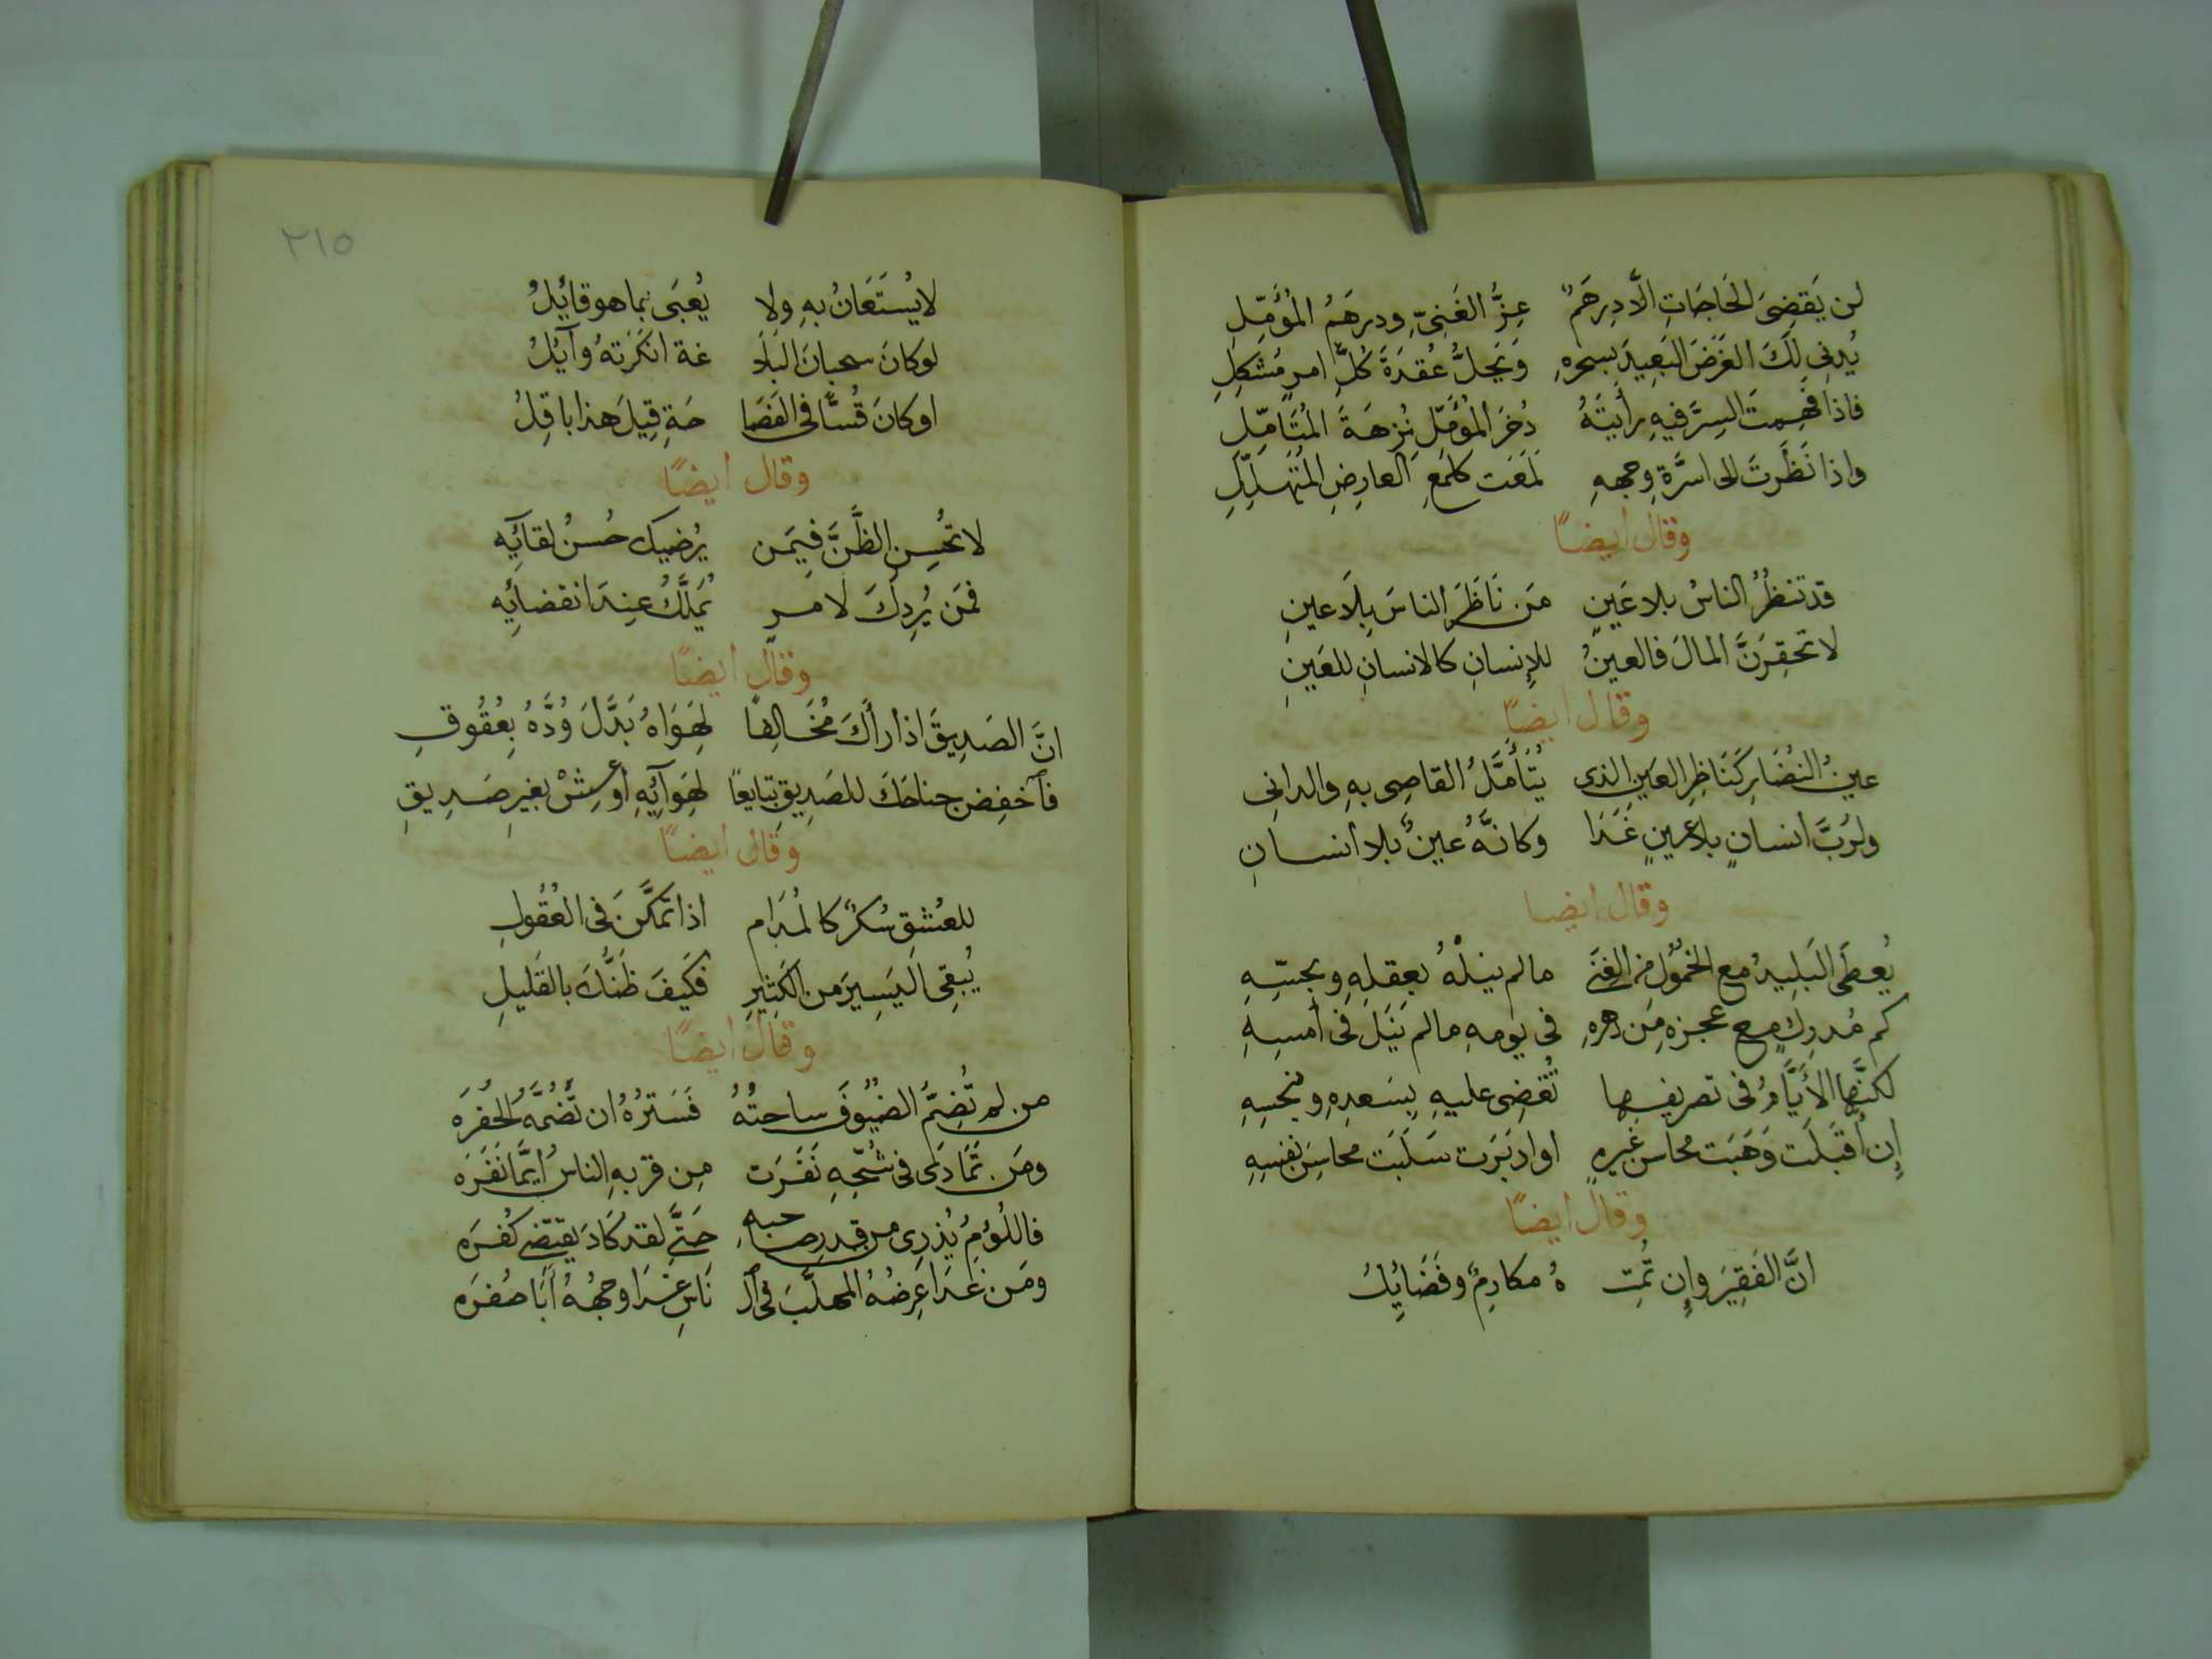 لن يَقضِىَ الحَاجَاتِ الَّا دِرهَمٌ عِزُّ الغَنِىّ ودرهَمُ المُؤَمِّلِ
يُدنِى لَكَ الغَرَضَ البَعِيدَ بسحرهِ وَيَحِلُّ عُقدَةَ كُلِّ امرٍ مُشكِلِ
فاذا فَهِمتَ السِرَّ فيهِ رأيتَهُ ذُخرَ المُؤَمّلِ نُزهَةَ المُتَامّلِ
واذا نَظَرتَ الى اسرَّةِ وجههِ لَمعَت كلمَعِ العارِضِ المُتَهلِّلِ
وقال ايضًا
قد تنظُرُ الناسُ بلا عَينٍ مَن نَاظَرَ الناسَ بِلَا عينِ
لا تحقِرَنَّ المالَ فالعينُ للإِنسانِ كالانسانِ للعَينِ
وقال ايضًا
عينُ النُضَارِ كَنَاظِرِ العَينِ الذى يُتَأَمَّلُ القاصِى بهِ والدانِى
ولرُبَّ انسانٍ بلا عينٍ غَدَا وكانَّهُ عينٌ بلا انسانِ
وقال ايضا
يُعطَى البَلِيدُ مع الخمُولِ من الغِنَى مالم ينلْهُ بعقلِهِ وبحسّهِ
كم مُدرِكٍ مع عجزهِ مِن دهرهِ فى يومهِ مالم يَنَل فى أمسِهِ
لكنَّها الأَيَّامُ فى تصريفِها تُقضِى عليهِ بِسَعدِهِ وبنحسِهِ
إِن أَقبَلَت وَهَبَت محاسنَ غيرهِ او ادبَرَت سَلَبَت محاسِنَ نفسِهِ
وقال ايضًا
انَّ الفَقِيرَ وإِن تُمِت هُ مكارِمٌ وفَضَايِلُ
٢١٥
لا يُستَعَانُ بهِ ولا يُعبَى بما هو قايِلُ
لوكانَ سحبانَ البَلَا غة انكَرَتهُ وآيلُ
او كانَ قُسًّا فى الفَصَا حَةِ قِيلَ هذا باقِلُ
وقال ايضًا
لا تحُسِن الظَّنَّ فِيمَن يُرضِيكَ حُسنُ لقايِه
فمَن يُرِدكَ لامرٍ يَملَّكُ عِندَ انقضايِه
وقال ايضًا
انَّ الصَدِيقَ اذا رأَكَ مُخَالِفًا لِهَوَاهُ بَدَّلَ وُدَّهُ بِعُقُوقِ
فآخفِض جناحَكَ للصَدِيقِ تابعًا لهَوآيِهِ أو عِشْ بغيرِ صَدِيقِ
وقال ايضًا
للعشقِ سُكرٌ كالمُدَامِ اذا تمَكَّنَ فى العُقُولِ
يُبقِى اليَسِيرَ من الكَثِيرِ فكَيفَ ظَنُّكَ بالقَليلِ
وقال ايضًا
من لم تُضِمَّ الضيُوفَ ساحتُهُ فَسَترُهُ ان تَضُمَّهُ الحُفرَه
ومَن تَمَادَى فى شُحِّهِ نَفَرَت مِن قربهِ الناسُ أَيَّمَا نَفَرَه
فاللُؤمُ يُذرِى من قدرِ صاحبهِ حَتَّى لقد كَادَ يَقتضِى كُفرَه
ومَن غَدَا عِرضُهُ المهلَّبَ فى آلـ نَاسِ غَدَا وجهُهُ أَبَا صُفرَه